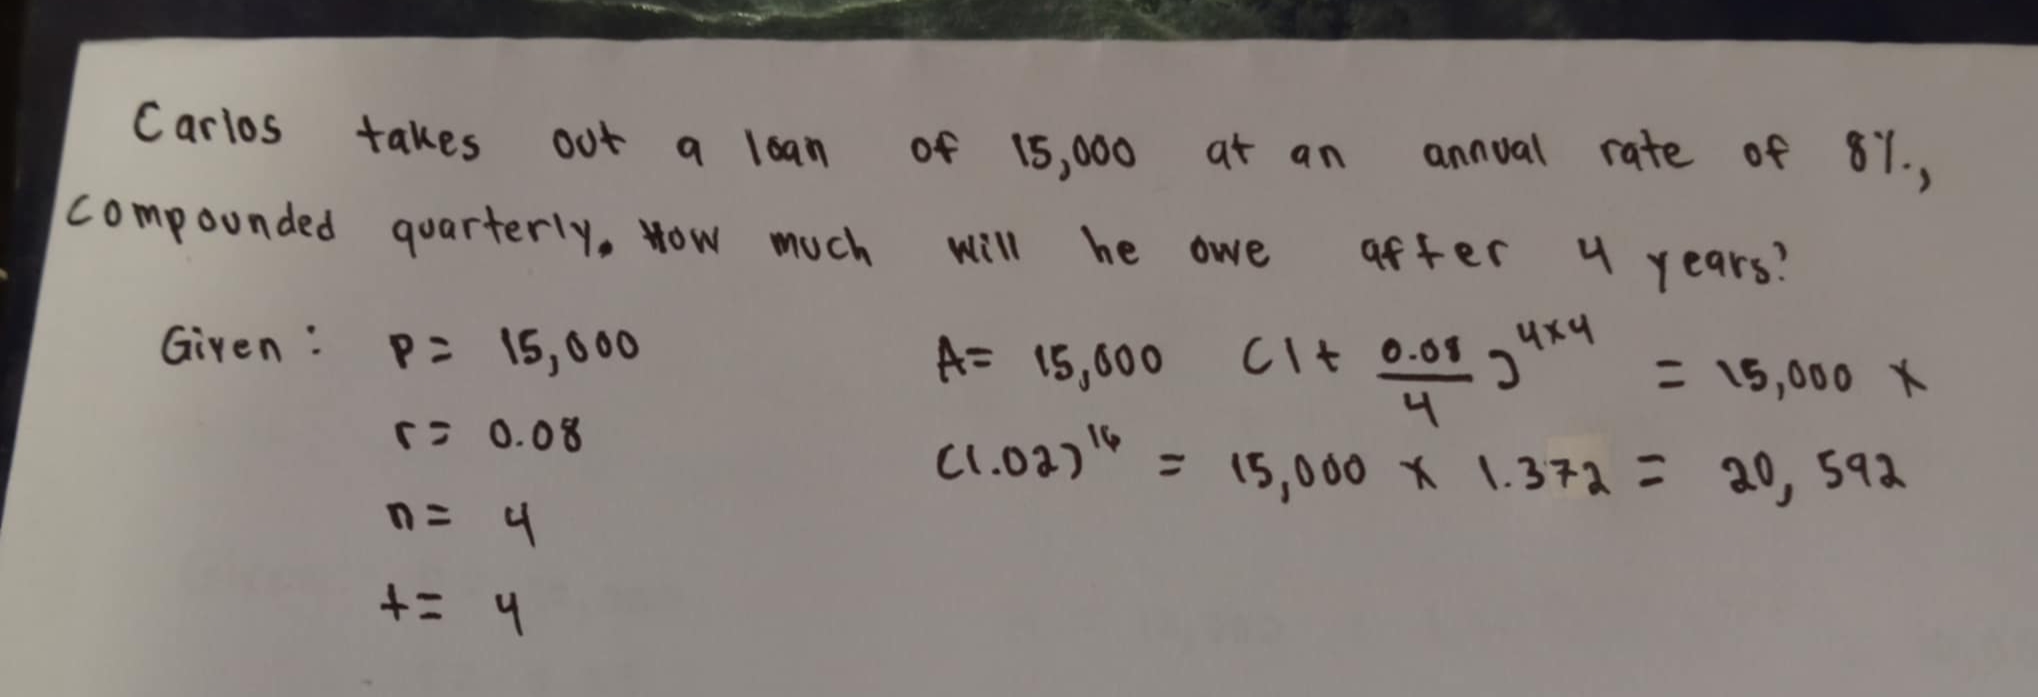 Carlos takes out a loan of 15,000 at an annual rate of 8%.,
compounded quarterly. How much will he owe after 4 years?
Given : P = 15,000 A = 15,000 (1 + 0.08/4)^4x4 = 15,000 x
r = 0.08 (1.02)^16 = 15,000 x 1.372 = 20,592
n = 4
t = 4